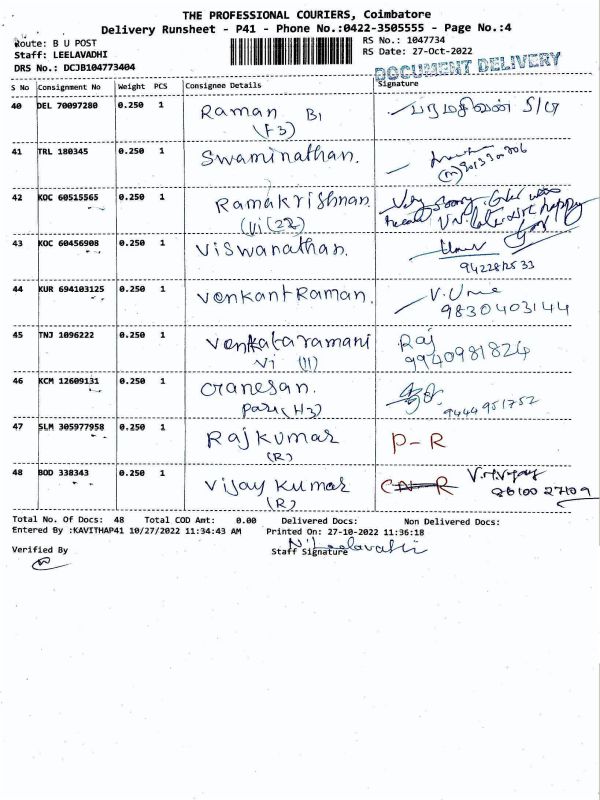 THE PROFESSIONAL COURIERS, Coimbatore
Delivery Runsheet - P41 - Phone No.:0422-3505555 - Page No.:4
Route: B U POST
RS No.: 1047734
Staff: LEELAVADHI
RS Date: 27-Oct-2022
DRS No.: DCJB104773404
DOCUMENT DELIVERY
S No Consignment No Weight PCS Consignee Details Signature
40 DEL 70097280 0.250 1 Raman B1
(F3)
41 TRL 180345 0.250 1 Swaminathan.
42 KOC 60515565 0.250 1 Ramakrishnan
Vi(22)
43 KOC 60456908 0.250 1 Viswanathan.
9422812533
44 KUR 694103125 0.250 1 Venkantraman. V. Uma
9830403144
45 TNJ 1096222 0.250 1 Venkataramani Raj
Vi (11) 9940981824
46 KCM 12609131 0.250 1 Ganesan.
Pari(H3) 9444951752
47 SLM 305977958 0.250 1 Rajkumar P-R
(R)
48 BOD 338343 0.250 1 Vijay Kumar
(R)
Total No. Of Docs: 48 Total COD Amt: 0.00 Delivered Docs: Non Delivered Docs:
Entered By :KAVITHAP41 10/27/2022 11:34:43 AM Printed On: 27-10-2022 11:36:18
Verified By Staff Signature N. Leelavathi